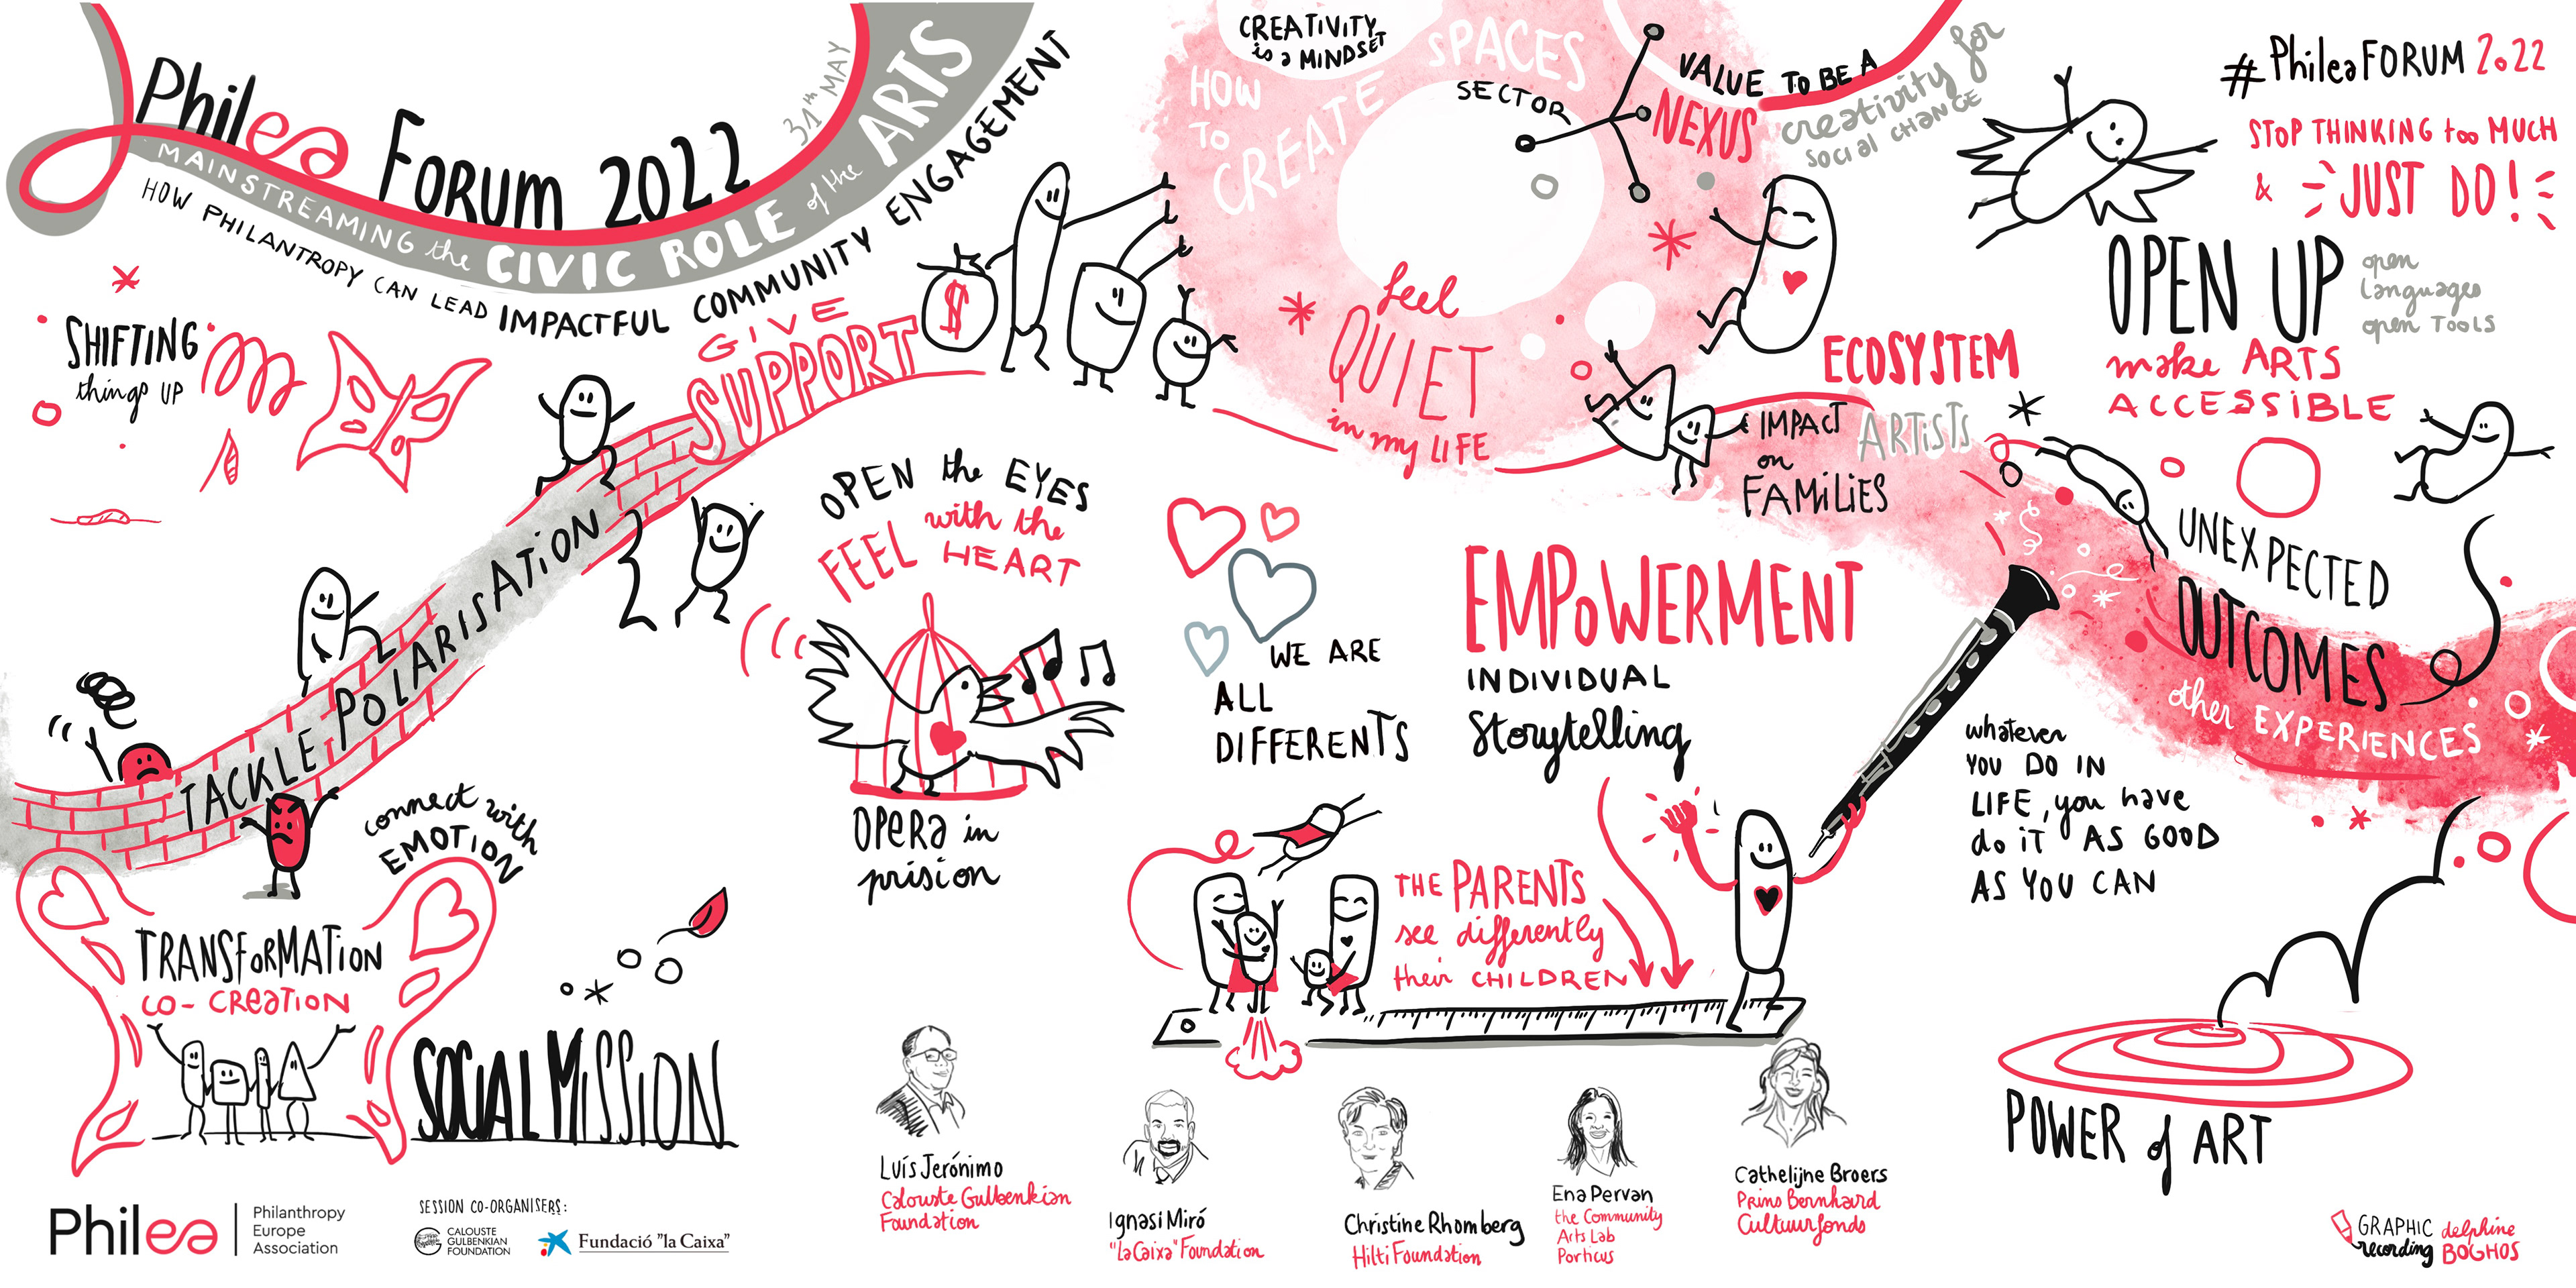 Philea Forum 2022
31th MAY
MAINSTREAMING the CIVIC ROLE of the ARTS
HOW PHILANTROPY CAN LEAD IMPACTFUL COMMUNITY ENGAGEMENT
SHIFTING
things UP
GIVE
SUPPORT
$
TACKLE POLARISATION
connect with
EMOTION
TRANSFORMATION
CO-CREATION
SOCIAL MISSION
OPEN the EYES
FEEL with the
HEART
OPERA in
prision
WE ARE
ALL
DIFFERENTS
CREATIVITY
is a MINDSET
HOW
TO
CREATE
SPACES
SECTOR
VALUE TO BE A
NEXUS
creativity for
social change
feel
QUIET
in my LIFE
ECOSYSTEM
IMPACT
on
FAMILIES
ARTISTS
EMPOWERMENT
INDIVIDUAL
Storytelling
THE PARENTS
see differently
their CHILDREN
#PhileaFORUM 2022
STOP THINKING too MUCH
& JUST DO!
OPEN UP
open
languages
open TOOLS
make ARTS
ACCESSIBLE
UNEXPECTED
OUTCOMES
other EXPERIENCES
whatever
YOU DO IN
LIFE, you have
do iT AS GOOD
AS YOU CAN
POWER of ART
Luís Jerónimo
Calouste Gulbenkian
Foundation
Ignasi Miró
"la Caixa" Foundation
Christine Rhomberg
Hilti Foundation
Ena Pervan
the Community
Arts Lab
Porticus
Cathelijne Broers
Prins Bernhard
Cultuurfonds
Philea
Philanthropy
Europe
Association
SESSION CO-ORGANISERS:
CALOUSTE
GULBENKIAN
FOUNDATION
Fundació "la Caixa"
GRAPHIC
recording
delphine
BOGHOS